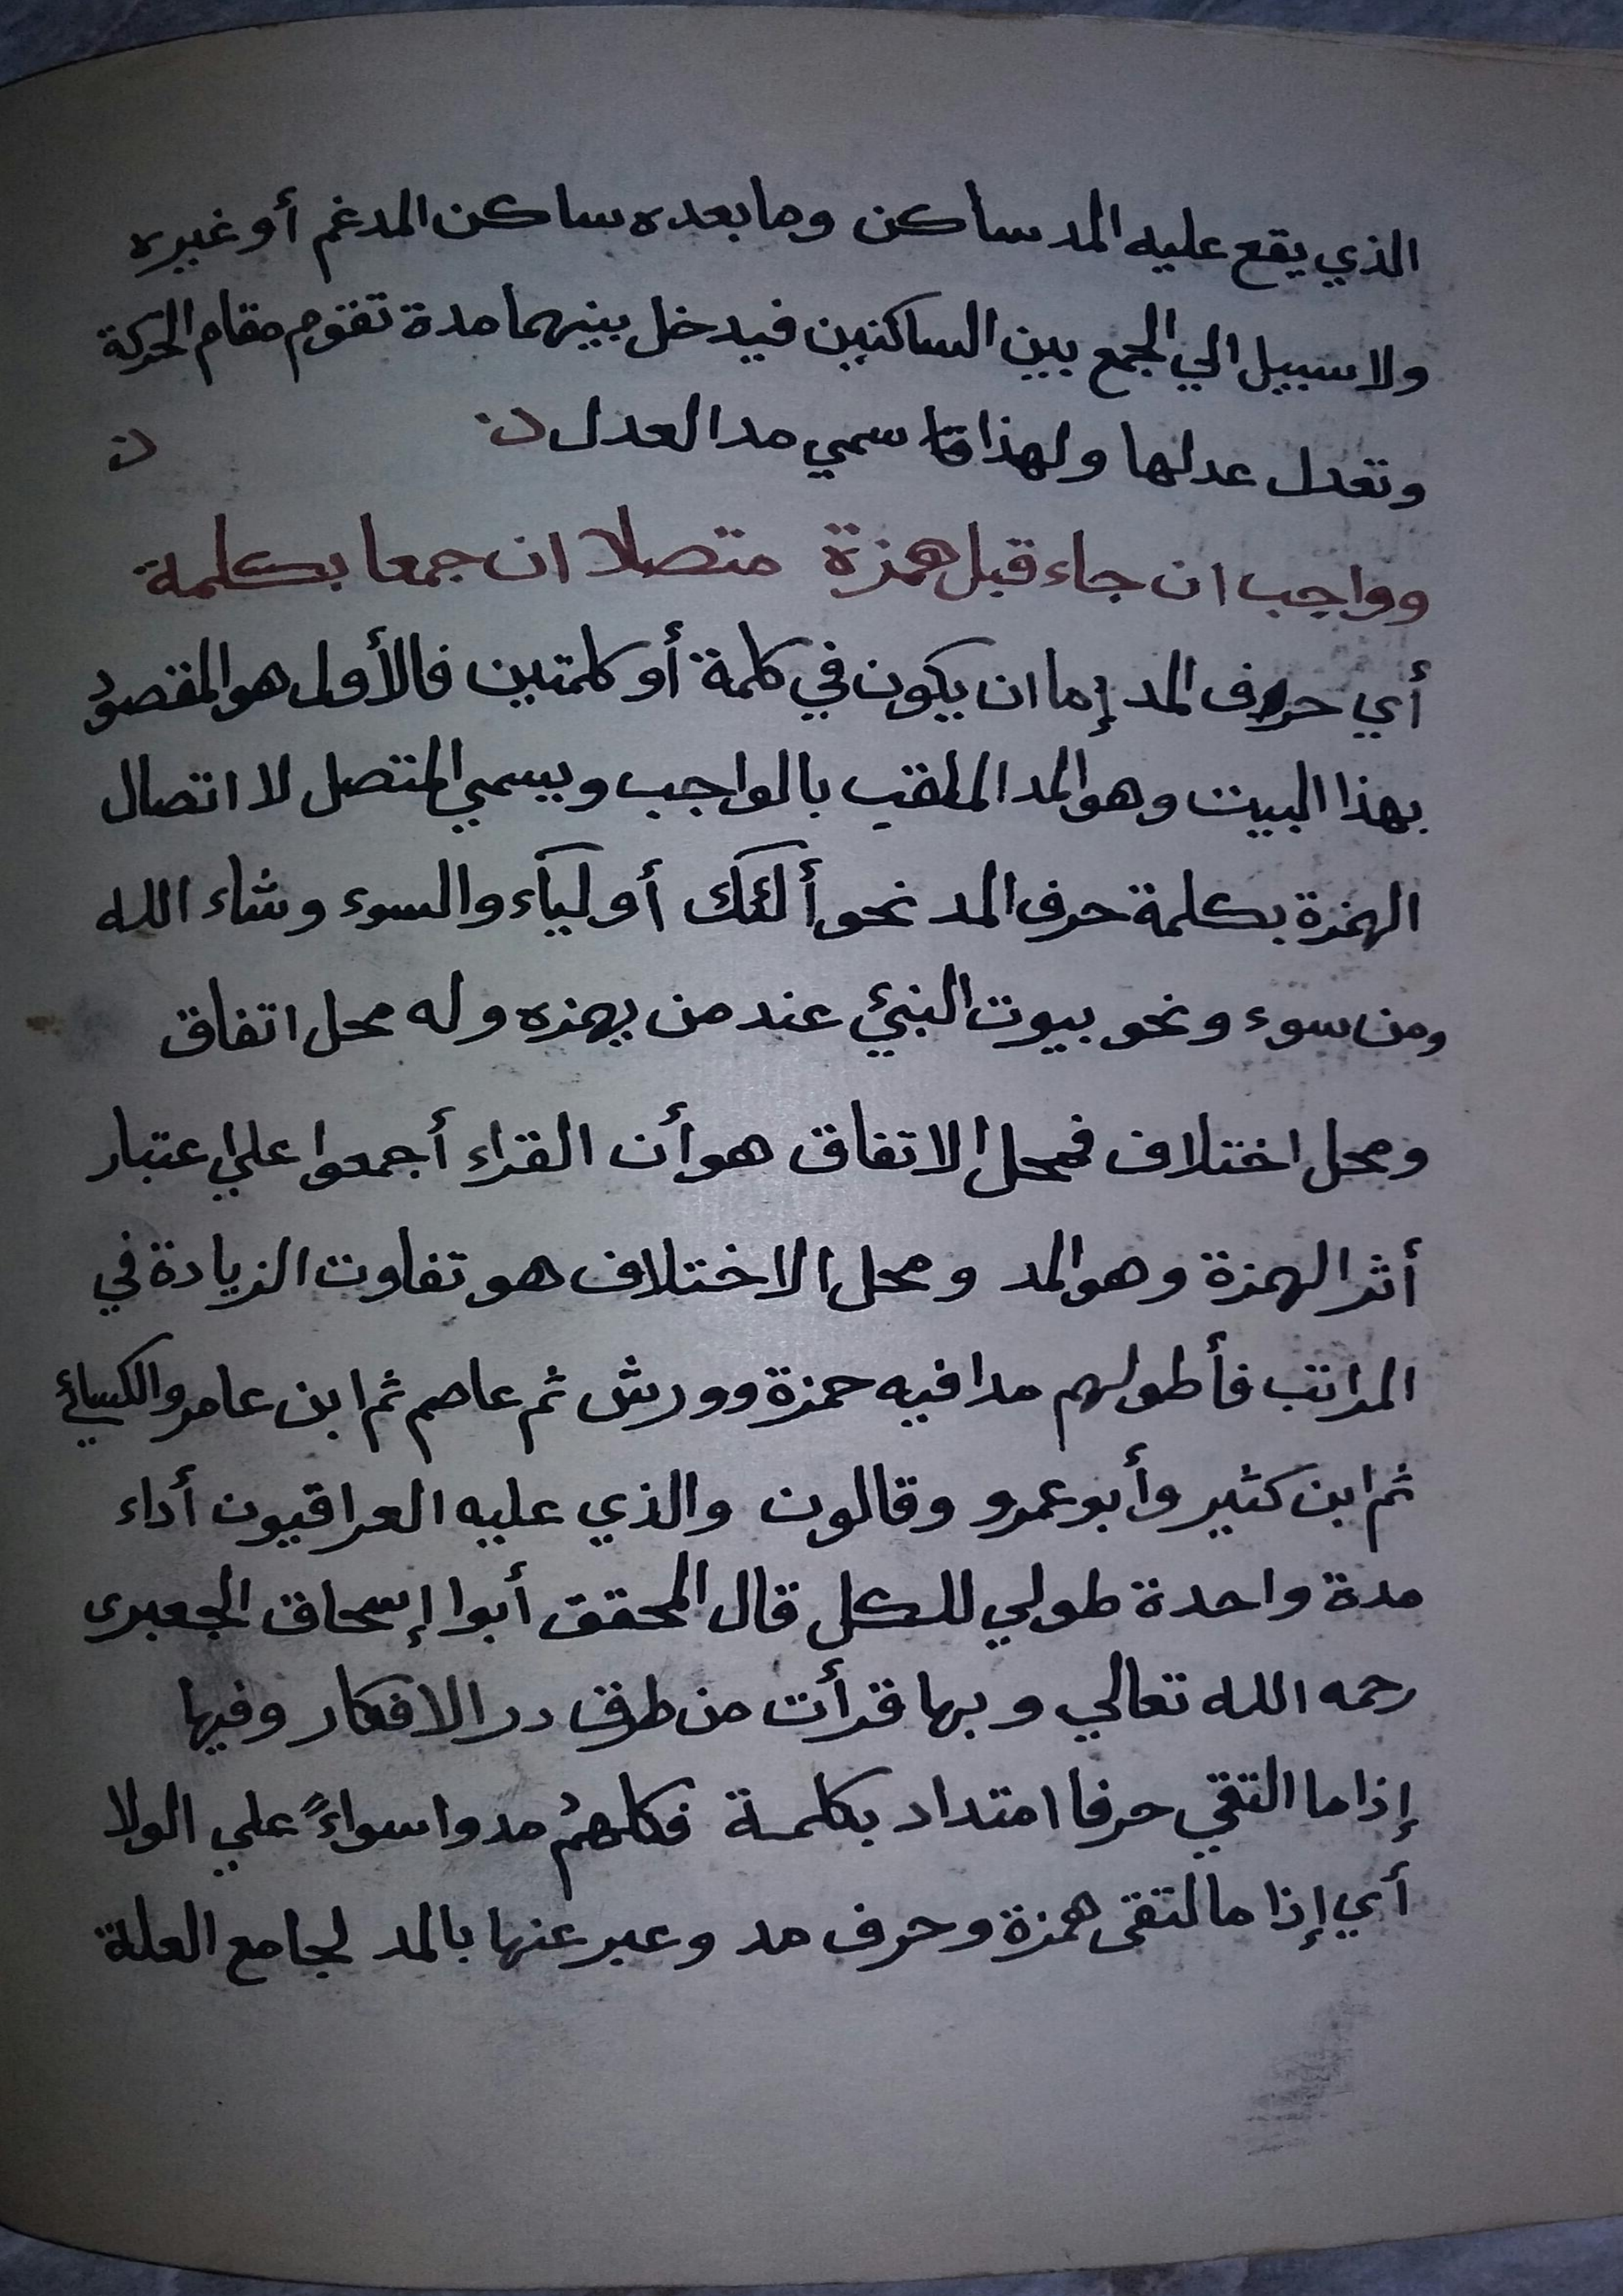 الذي يقع عليه المد ساكن وما بعده ساكن المدغم أو غيره
ولا سبيل الي الجمع بين الساكنين فيدخل بينهما مدة تقوم مقام الحركة
وتعدل عدلها ولهذا سمي مد العدل ن ن
وواجب ان جاء قبل همزة متصلا ان جمعا بكلمة
أي حرف المد إما ان يكون في كلمة أو كلمتين فالأول هو المقصود
بهذا البيت وهو المد الملقب بالواجب ويسمي المتصل لا اتصال
الهمزة بكلمة حرف المد نحو ألئك أوليآء والسوء وشاء الله
ومن سوء ونحو بيوت النبئ عند من يهمزه وله محل اتفاق
ومحل اختلاف فمحل الاتفاق هو أن القراء أجمعوا علي اعتبار
أثر الهمزة وهو المد ومحل الاختلاف هو تفاوت الزيادة في
المراتب فأطولهم مدا فيه حمزة وورش ثم عاصم ثم ابن عامر والكسائي
ثم ابن كثير وأبو عمرو وقالون والذي عليه العراقيون أداء
مدة واحدة طولي للكل قال المحقق أبوا إسحاق الجعبرى
رحمه الله تعالي وبها قرأت من طرق درر الافكار وفيها
إذا ما التقي حرفا امتداد بكلمة فكلهمُ مدوا سواءً علي الولا
أي إذا مالتقى همزة وحرف مد وعبر عنها بالمد لجامع العلة